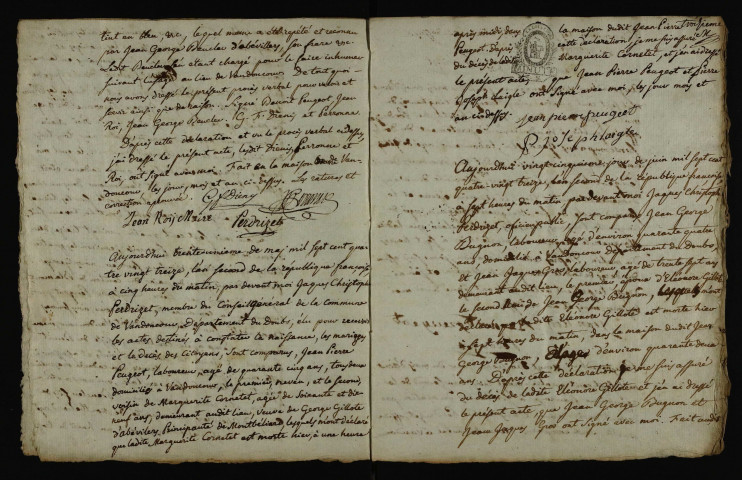 tout en bleu, etc, lequel nous a été répété et reconnu
par Jean George Beucler d'abévillers, son frere
étant chargé pour le faire inhumer
au lieu de Vandoncour. De tout quoi
nous avons dressé le présent procès verbal pour valoir et
servir ainsi que de raison. Signé Peugeot, Jean
Roi, Jean George Beucler, G. F. Diény et Perronne
D'après cette déclaration et vu le procès verbal cidessus,
j'ai dressé le présent acte, ledit Diény, Perronne et
Roi, ont signé avec moi. Fait en la maison de Van-
doncour, les jour, mois et an ci-dessus. Les ratures et
correction approuvé.
Jean Roy Maire Perdrizet
Aujourdhui trente unieme de mai mil sept cent qua-
tre vingt treize, l'an second de la république françoise
à cinq heures du matin, par devant moi Jaques Christophe
Perdrizet, membre du Conseil général de la Commune
de Vandoncour, Département du Doubs, élu pour recevoir
les actes destinés à constater la naissance, les mariages
et le décès des citoyens, sont comparus, Jean Pierre
Peugeot, laboureur, agé de quarante cinq ans, tous deux
domiciliés à Vandoncour, le premier, neveu, et le second,
voisin de Marguerite Cornetet, agée de soixante et dix
neuf ans, demeurant audit lieu, veuve de George Gillote
d'abévillers, Principauté de Montbéliard, lesquels m'ont déclaré
que ladite Marguerite Cornetet est morte hier, à une heure
après midi, dans la maison dudit Jean Pierre
Peugeot. D'après cette déclaration je me suis assuré
du décès de ladite Marguerite Cornetet, et j'ai dressé
le présent acte, que Jean Pierre Peugeot et Pierre
Joseph Laigle ont signé avec moi, les jour, mois et
an ci dessus.
jean pierre peugeot
P. Joseph laigle
Aujourdhui vingt cinquieme jour de juin mil sept cent
quatre vingt treize, l'an second de la république françoise
à sept heures du matin, par devant moi Jaques Christophe
Perdrizet, officier public sont comparus Jean George
Bugnon, laboureur, agé d'environ quarante quatre
ans, domicilié à Vandoncour département du Doubs,
et Jean Jaques Gros, laboureur, agé de trente sept ans
demeurant audit lieu, le premier, époux d'Eléonore Gillote
le second de Jean George Bugnon, lesquels m'ont
ladite Eléonore Gillote est morte hier
à sept heures du matin, dans la maison dudit Jean
George Bugnon, agée d'environ quarante deux
ans. D'après cette déclaration je me suis assuré
du décès de ladite Eléonore Gillote et j'ai dressé
le présent acte, que Jean George Bugnon et
Jean Jaques Gros ont signé avec moi. Fait audit